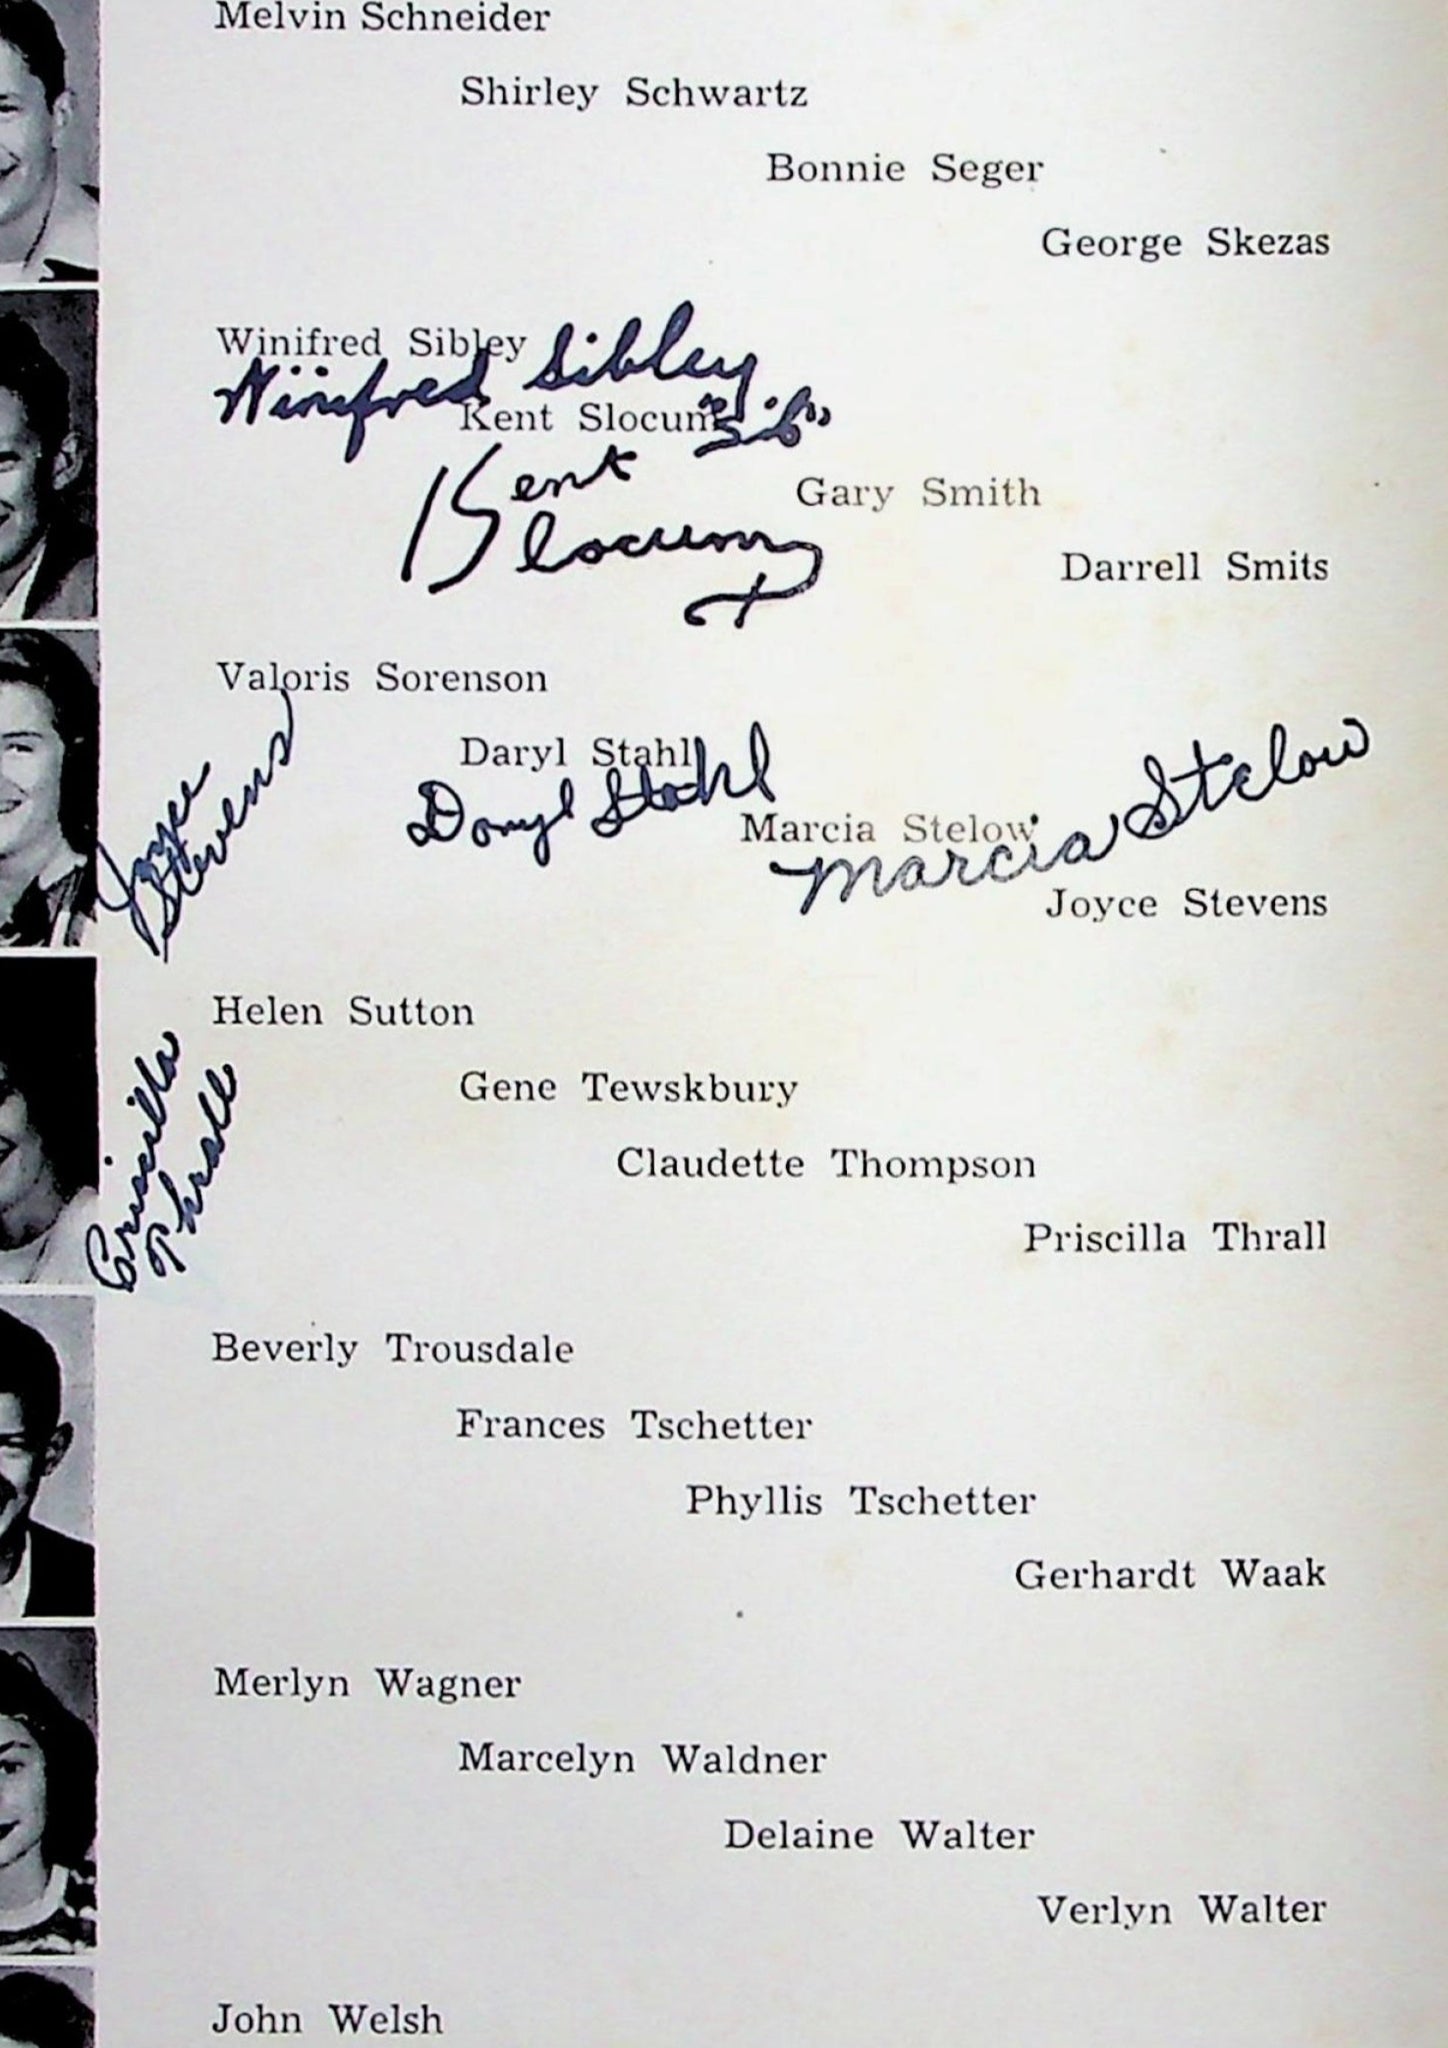 Melvin Schneider
Shirley Schwartz
Bonnie Seger
George Skezas
Winifred Sibley
Winifred Sibley
"Sib"
Kent Slocum
Kent
Slocum
Gary Smith
Darrell Smits
Valoris Sorenson
Daryl Stahl
Daryl Stahl
Marcia Stelow
Marcia Stelow
Joyce Stevens
Joyce
Stevens
Helen Sutton
Gene Tewskbury
Claudette Thompson
Priscilla Thrall
Priscilla
Thrall
Beverly Trousdale
Frances Tschetter
Phyllis Tschetter
Gerhardt Waak
Merlyn Wagner
Marcelyn Waldner
Delaine Walter
Verlyn Walter
John Welsh